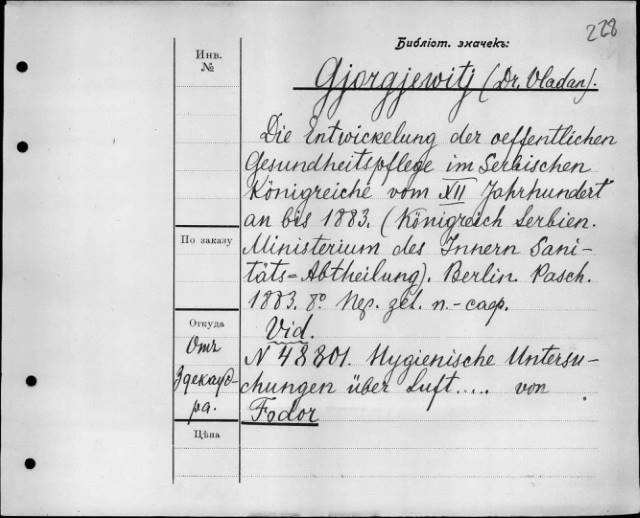 228
Библіот. значекъ:
Инв.
№
Gjorgjewitj (Dr. Vladan).
Die Entwickelung der oeffentlichen
Gesundheitspflege im Serbischen
Königreiche vom XII Jahrhundert
an bis 1883. (Königreich Serbien.
По заказу
Ministerium des Innern Sani-
täts=Abtheilung). Berlin. Pasch.
1883. 8°.
Откуда
Vid.
Отъ
N 48801. Hygienische Untersu-
chungen über Luft.... von
Fodor
Цѣна